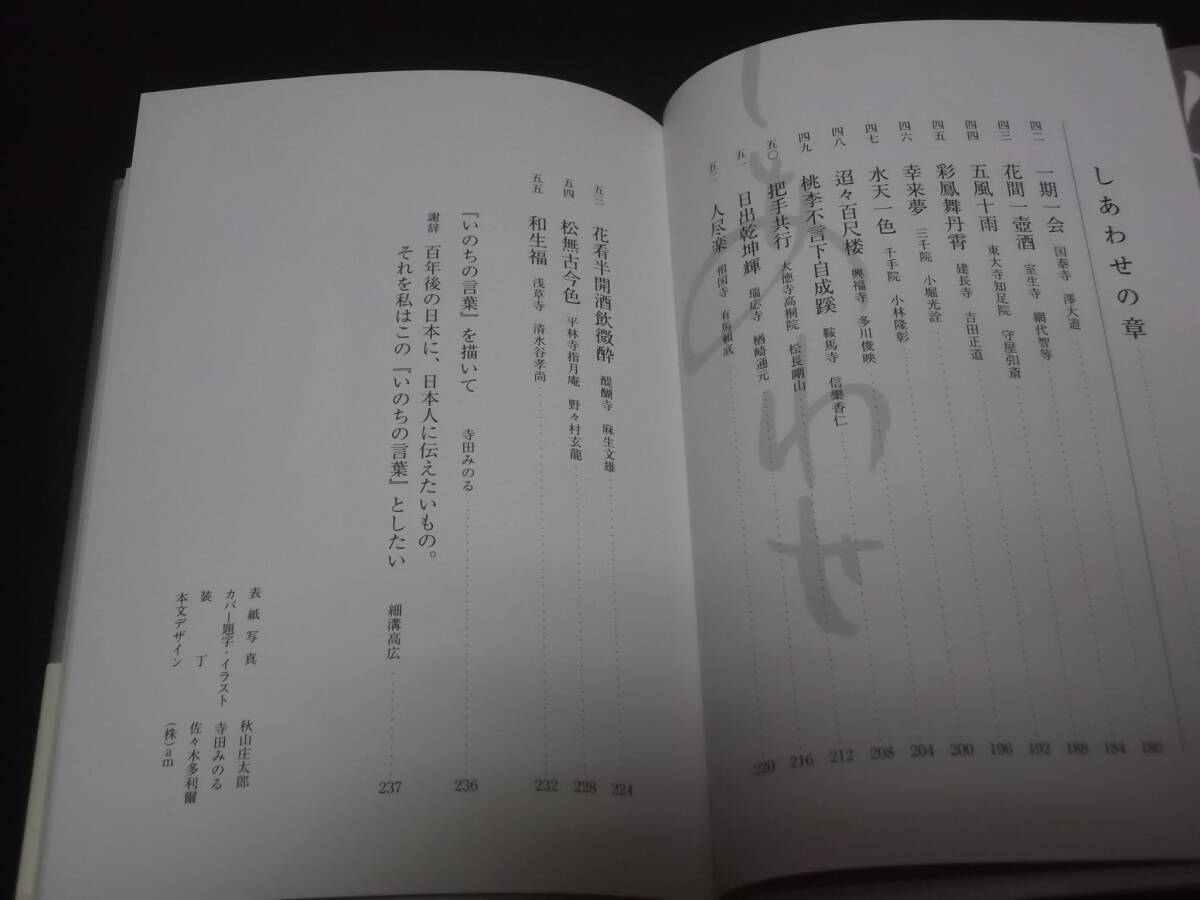 しあわせ
しあわせの章
四二 一期一会 国泰寺 澤大道 180
四三 花間一壺酒 室生寺 網代智等 184
四四 五風十雨 東大寺知足院 守屋弘斎 188
四五 彩鳳舞丹霄 建長寺 吉田正道 192
四六 幸来夢 三千院 小堀光詮 196
四七 水天一色 千手院 小林隆彰 200
四八 迢々百尺楼 興福寺 多川俊映 204
四九 桃李不言下自成蹊 鞍馬寺 信樂香仁 208
五〇 把手共行 大徳寺高桐院 松長剛山 212
五一 日出乾坤輝 瑞応寺 楢崎通元 216
五二 人尽楽 相国寺 有馬頼底 220
五三 花看半開酒飲微酔 醍醐寺 麻生文雄 224
五四 松無古今色 平林寺指月庵 野々村玄龍 228
五五 和生福 浅草寺 清水谷孝尚 232
『いのちの言葉』を描いて 寺田みのる 236
謝辞 百年後の日本に、日本人に伝えたいもの。
それを私はこの『いのちの言葉』としたい 細溝高広 237
表紙写真 秋山庄太郎
カバー題字・イラスト 寺田みのる
装丁 佐々木多利爾
本文デザイン (株)am